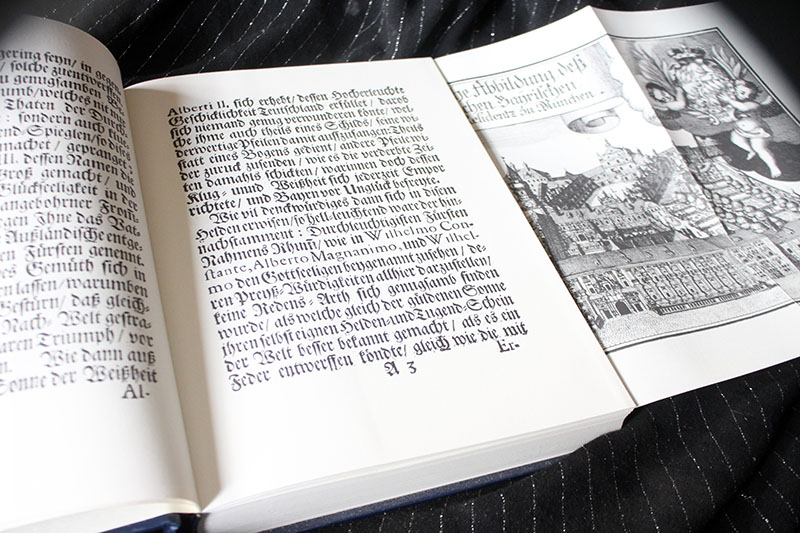 gering seyn/ in gegen
/ solche zuentwerffen
u genugsamben
umb/welches nit mit
Thaten der Durch-
: sondern auch
end-Spieglen/so dises
machet/ gepranget
III. dessen Namen die
Groß gemacht/ und
Glückseeligkeit in der
angebohrner From-
gen Ihne das Vat-
Außländische entge-
en Fürsten genennt.
es Gemüth sich in
en lassen/warumben
Gestürn/ daß gleich-
Nach-Welt gestra-
aren Triumph/ vor
n. Wie dann auß
Sonne der Weißheit
Al-
Alberti II. sich erhebt/ dessen Hocherleuchte
Geschicklichkeit Teutschland erfüllet/ darob
sich niemand gnug verwundern könte/ wel-
che ihme auch theils eines Schilds/ seine wi-
derwertige Pfeilen damit auffzufangen: Theils
statt eines Bogens gedient/ andere Pfeile wi-
der zuruck zusenden/ wie es die verderbte Zei-
ten damahls schickten/ warvon doch dessen
Klug- unnd Weißheit sich jederzeit Empor
richtete/ und Bayrn vor Unglück befreyet.
Wie vil denckwürdiges dann sich in disem
Helden erwisen/ so hell-leuchtend ware der hin-
nachstammenter: Durchleuchtigisten Fürsten
Nahmens Rhum/ wie in Wilhelmo Con-
stante, Alberto Magnanimo, und Wilhel-
mo den Gottseeligen beygenannt zusehen/ de-
ren Preyß-Würdigkeiten allhier darzustellen/
keine Redens-Arth sich genugsamb finden
wurde/ als welche gleich der güldenen Sonne
ihren selbst eignen Helden-und Tugend-Schein
der Welt besser bekannt gemacht/ als es ein
Feder entwerffen köndte/ gleich wie die mit
A 3 Er-
ge Abbildung deß
chen Bayrischen
sidentz zu München.